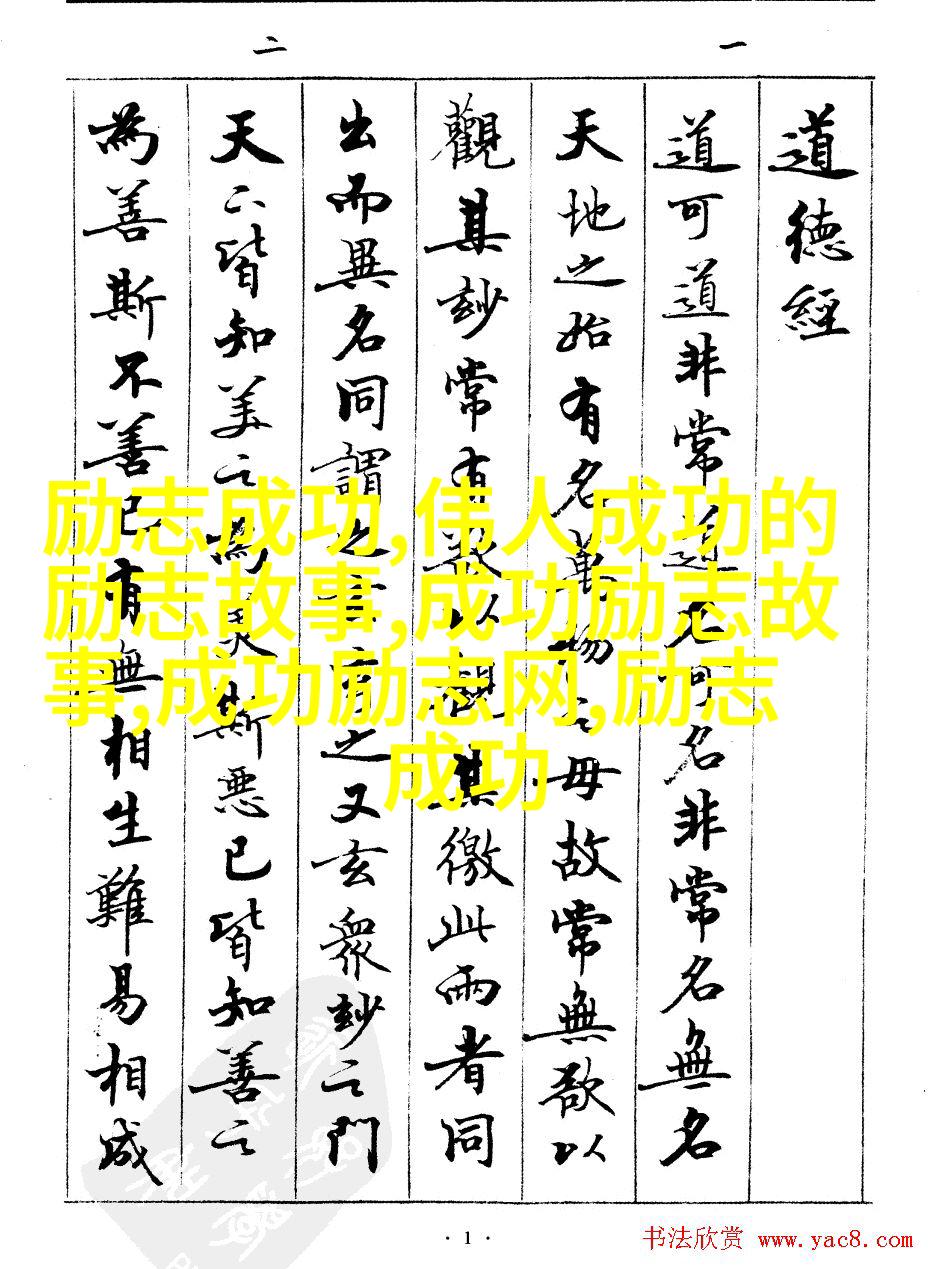 一
道德經
道可道非常道名可名非常名無名
天地之始有名萬物之母故常無欲以
觀其玅常有欲以觀其徼此兩者同
二
出而異名同謂之玄玄之又玄衆玅之門
天下皆知美之為美斯惡已皆知善之
為善斯不善已有無相生難易相成
励志成功,伟人成功的
励志故事,成功励志故
事,成功励志网,励志
成功
· 1 ·
书法欣赏 www.yac8.com